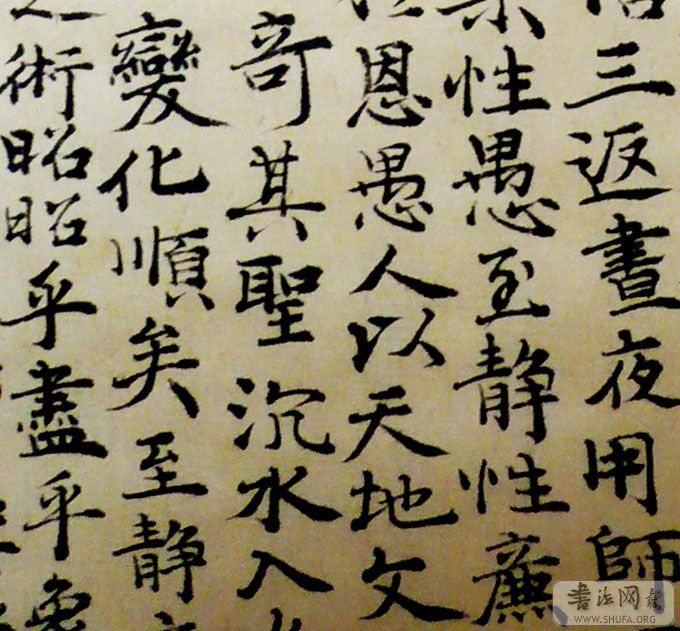 三返晝夜用師
性愚至静性廉
恩愚人以天地文
奇其聖沉水入
變化順矣至静
之術昭昭乎盡乎象
書法网
WWW.SHUFA.ORG